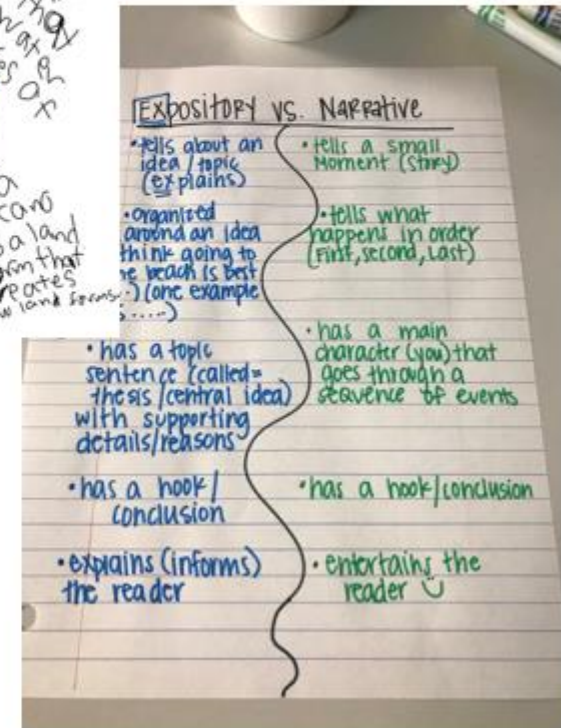 EXpository vs. Narrative
•tells about an
idea/topic
(explains)
•organized
around an idea
think going to
beach is best
(one example
.....)
•has a topic
sentence (called=
thesis/central idea)
with supporting
details/reasons
•has a hook/
conclusion
•explains (informs)
the reader
•tells a small
Moment (Story)
•tells what
happens in order
(First, second, Last)
•has a main
character (you) that
goes through a
sequence of events
•has a hook/conclusion
•entertains the
reader
a land
that
land